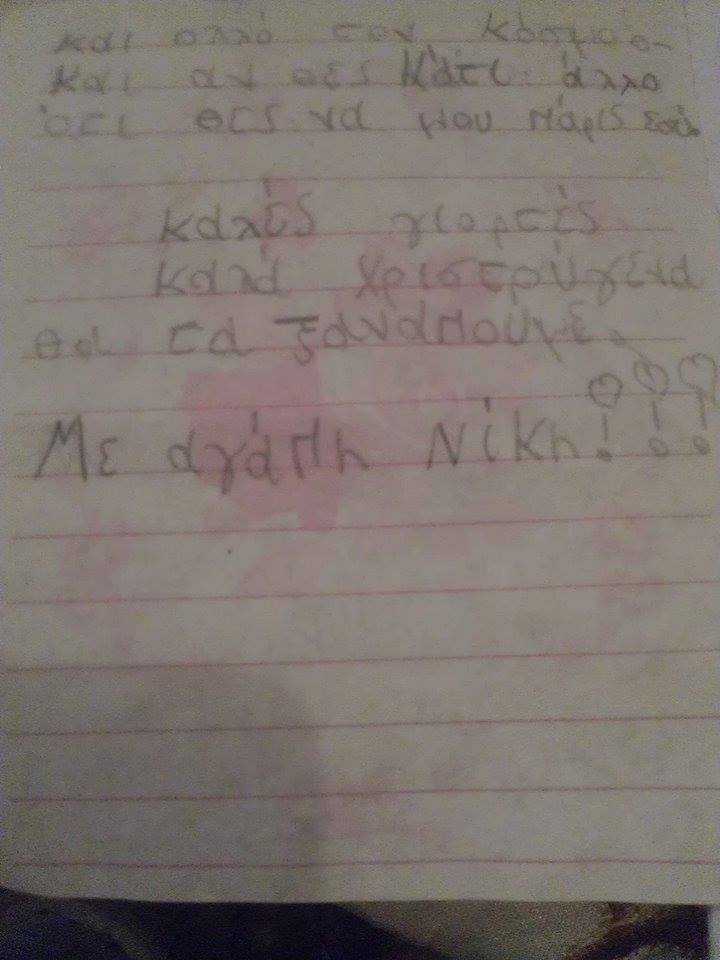 και ολλό τον κόσμιο
και αν θες κάτι άλλο
ότι θες να μου πάρις εσύ
καλές γιορτές
καλά Χριστούγενα
θα τα ξαναπούμε.
Με αγάπη Νίκη!!!